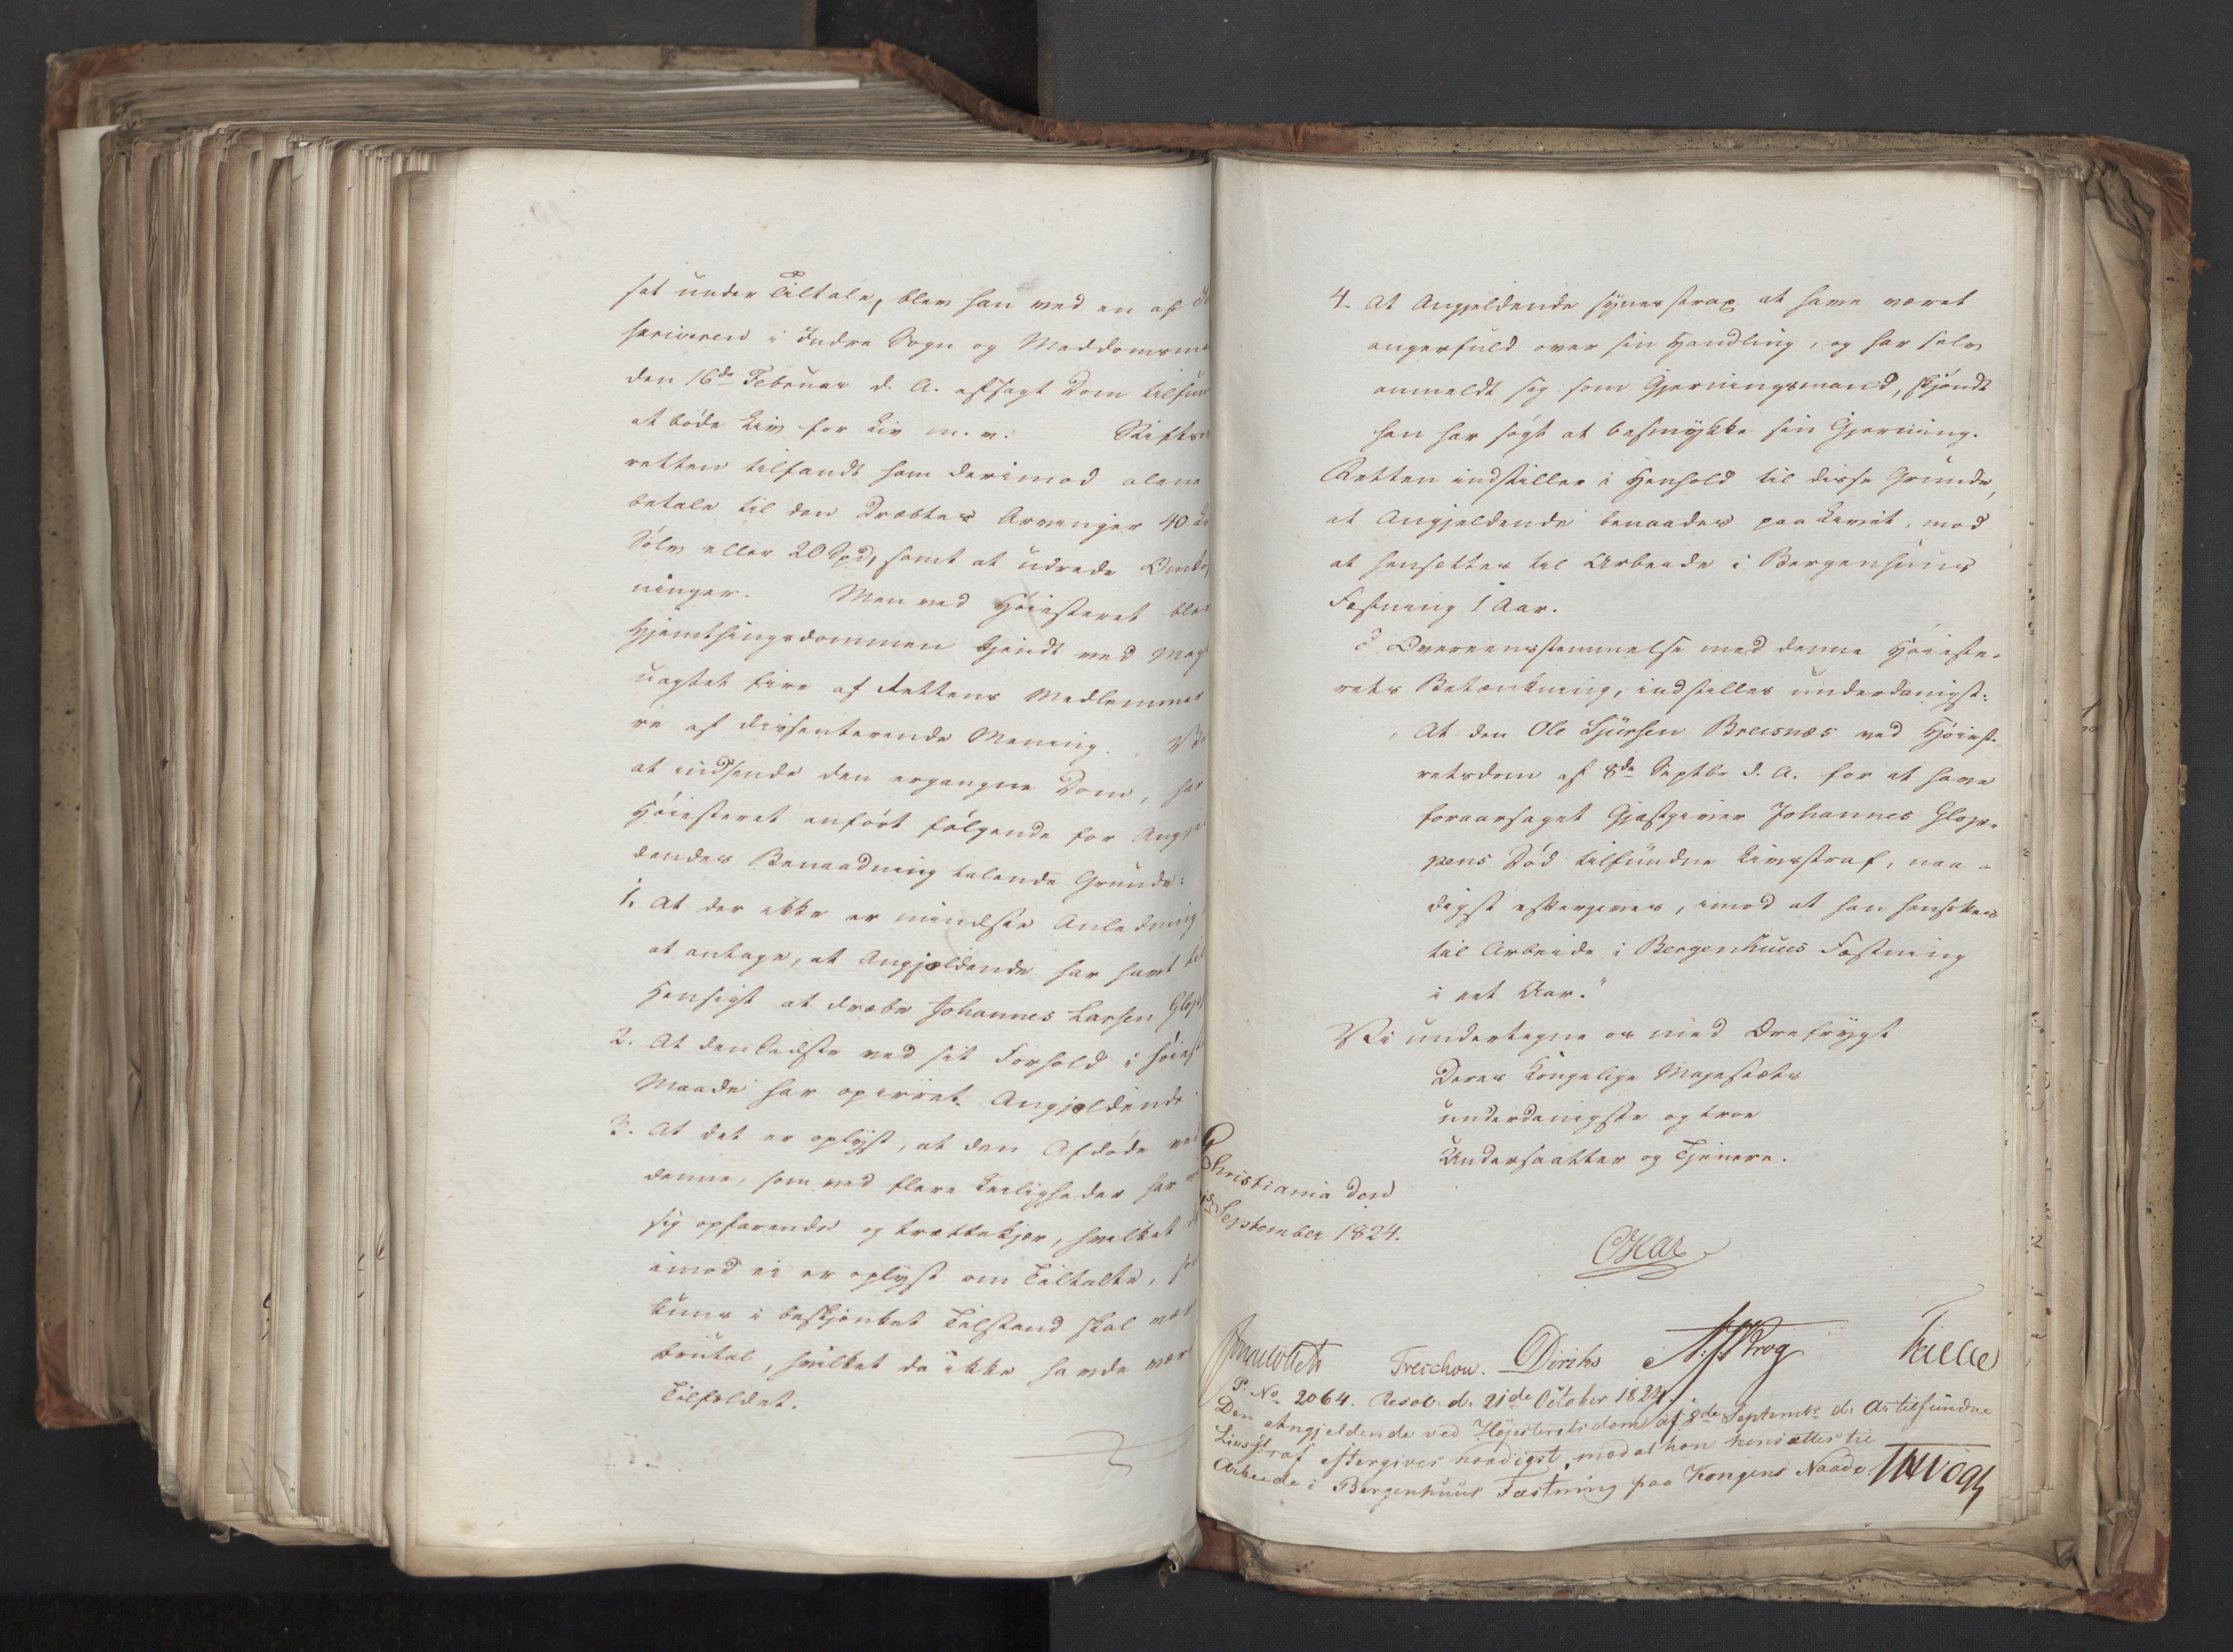 sat under Tiltale, blev han ved en af
skriveren i Indre Sogn og Meddomsmæ
den 16de Februar d. A. afsagt Dom tilfun
at bøde Liv for Liv m. v. Stifts
retten tilfandt ham derimod alene
betale til den Dræbtes Arvinger 40
Sølv eller 20 Spd, samt at udrede Omkos
ninger. Men ved Høiesteret blev
Hjemthingsdommen kjendt ved Magt
uagtet fire af Rettens Medlemmer
re af dissenterende Mening. Ve
at indsende den ergangne Dom, har
Høiesteret anført følgende for Angjel
dendes Benaadning talende Grunde:
1. At der ikke er mindste Anledning
at antage, at Angjældende har havt til
Hensigt at dræbe Johannes Larsen Glop
2. At den Sidste ved sit Forhold i høieste
Maade har opirret Angjældende
3. At det er oplyst, at den Afdøde ved
denne, som ved flere Leiligheder har
sig opfarende og trættekjær, hvilket
imod ei er oplyst om Tiltalte, som
kuns i beskjænket Tilstand skal være
brutal, hvilket da ikke havde været
Tilfældet.
4. At Angjeldende synes strax at have været
angerfuld over sin Handling, og har selv
anmeldt sig som Gjerningsmand, skjøndt
han har søgt at besmykke sin Gjerning.
Retten indstiller i Henhold til disse Grunde,
at Angjeldende benaades paa Livet, mod
at hensættes til Arbeide i Bergenhuus
Fæstning 1 Aar.
I Overeensstemmelse med denne Høieste-
rets Betænkning, indstilles underdanigst:
At den Ole Sjursen Breisnæs ved Høieste-
retsdom af 8de Septbr d. A. for at have
foraarsaget Gjæstgiver Johannes Glop-
pens Død tilfundne Livsstraf, naa-
digst eftergives, imod at han hensættes
til Arbeide i Bergenhuus Fæstning
i eet Aar."
Vi undertegne os med Ærefrygt
Deres Kongelige Majestæts
underdanigste og troe
Undersaatter og Tjenere.
Christiania den
September 1824.
Oskar
Treschow. Diriks Krog
P. No 2064. Resol. d. 21de October 1824
Den Angjeldende ved Høiesteretsdom af 8de Septembr d. A. tilfundne
Livsstraf eftergives naadigst, mod at han hensættes til
Arbeide i Bergenhuus Fæstning paa Kongens Naade. Vogt